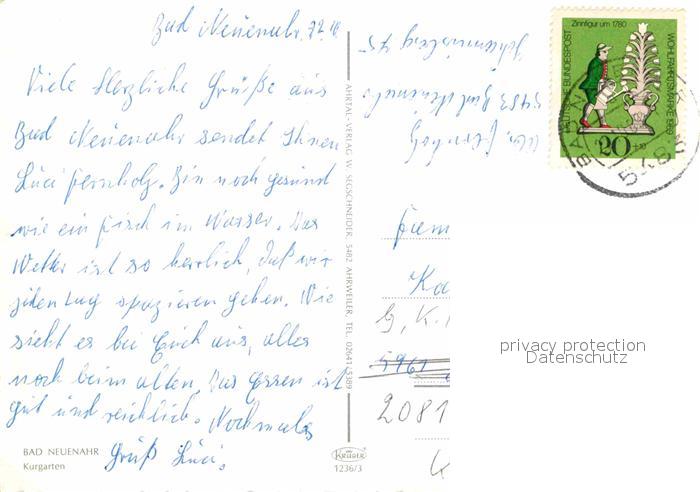 Bad Neuenahr, 
Viele Herzliche Grüße aus
Bad Neuenahr sendet Ihnen
Luci Fernholz. Bin noch gesund
wie ein Fisch im Wasser. Das
Wetter ist so herrlich, daß wir
jeden Tag spazieren gehen. Wie
sieht es bei Euch aus, alles
noch beim alten. Das Essen ist
gut und reichlich. Nochmals
Gruß Luci.
BAD NEUENAHR
Kurgarten
AHRTAL-VERLAG W. SEGSCHNEIDER, 5482 AHRWEILER, TEL. 02641/5389
KRÜGER
1236/3
5483 Bad Neuenahr
Zinnfigur um 1780
DEUTSCHE BUNDESPOST
WOHLFAHRTSMARKE 1969
20+10
Fam
Ka
G, K.
5961
2081
privacy protection
Datenschutz